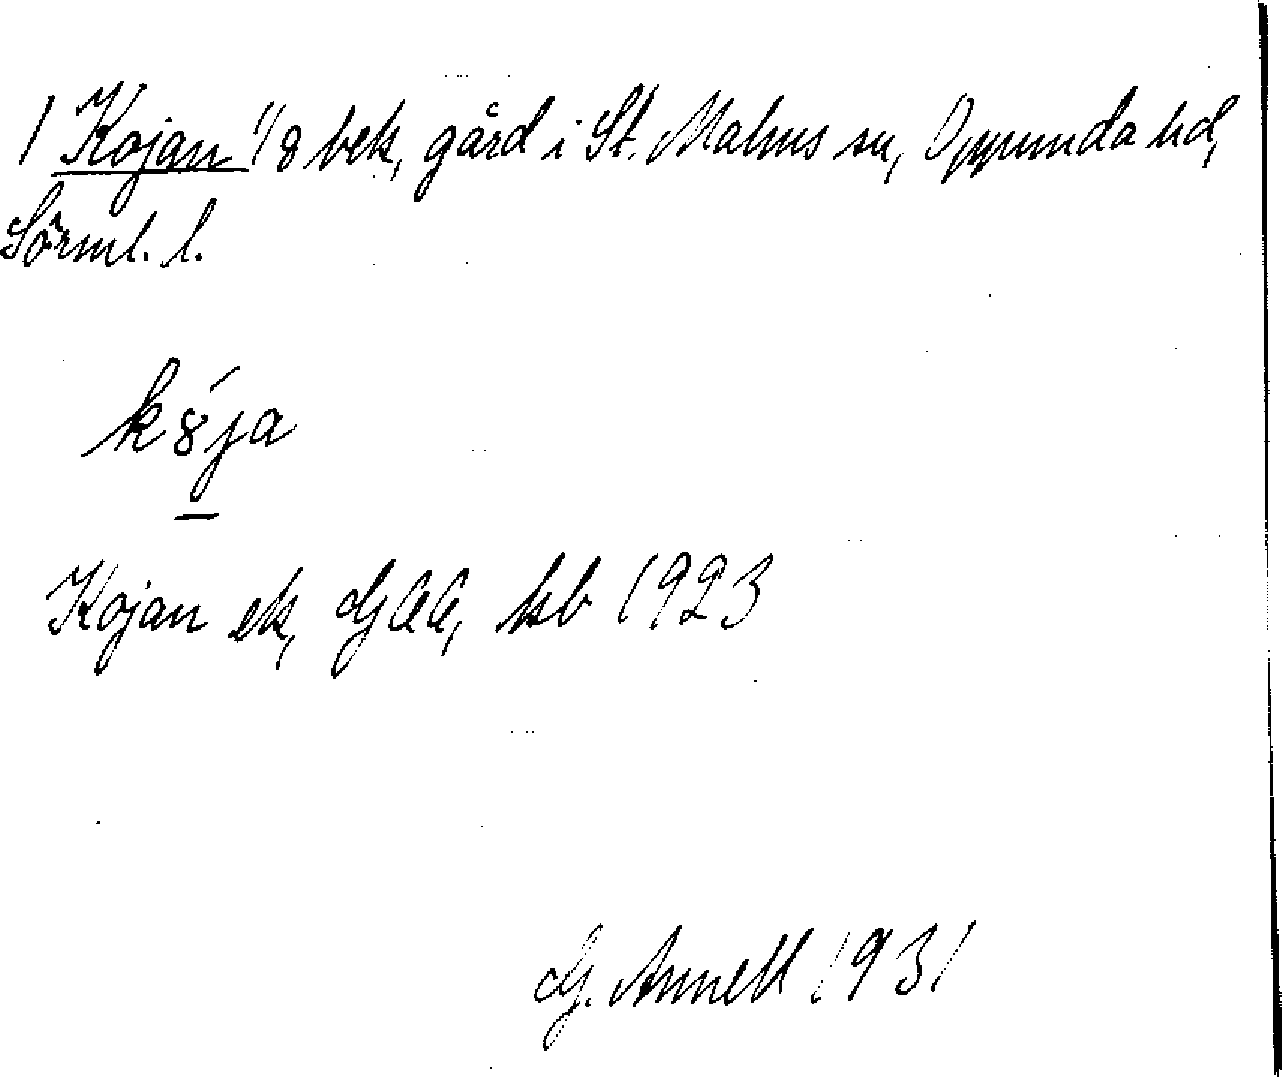 1 Kojan 1/8 bek, gård i St. Malms sn, Oppunda hd,
Sörml. l.
k8́ja
Kojan ek, GAA, kb 1923
G. Annell 1931